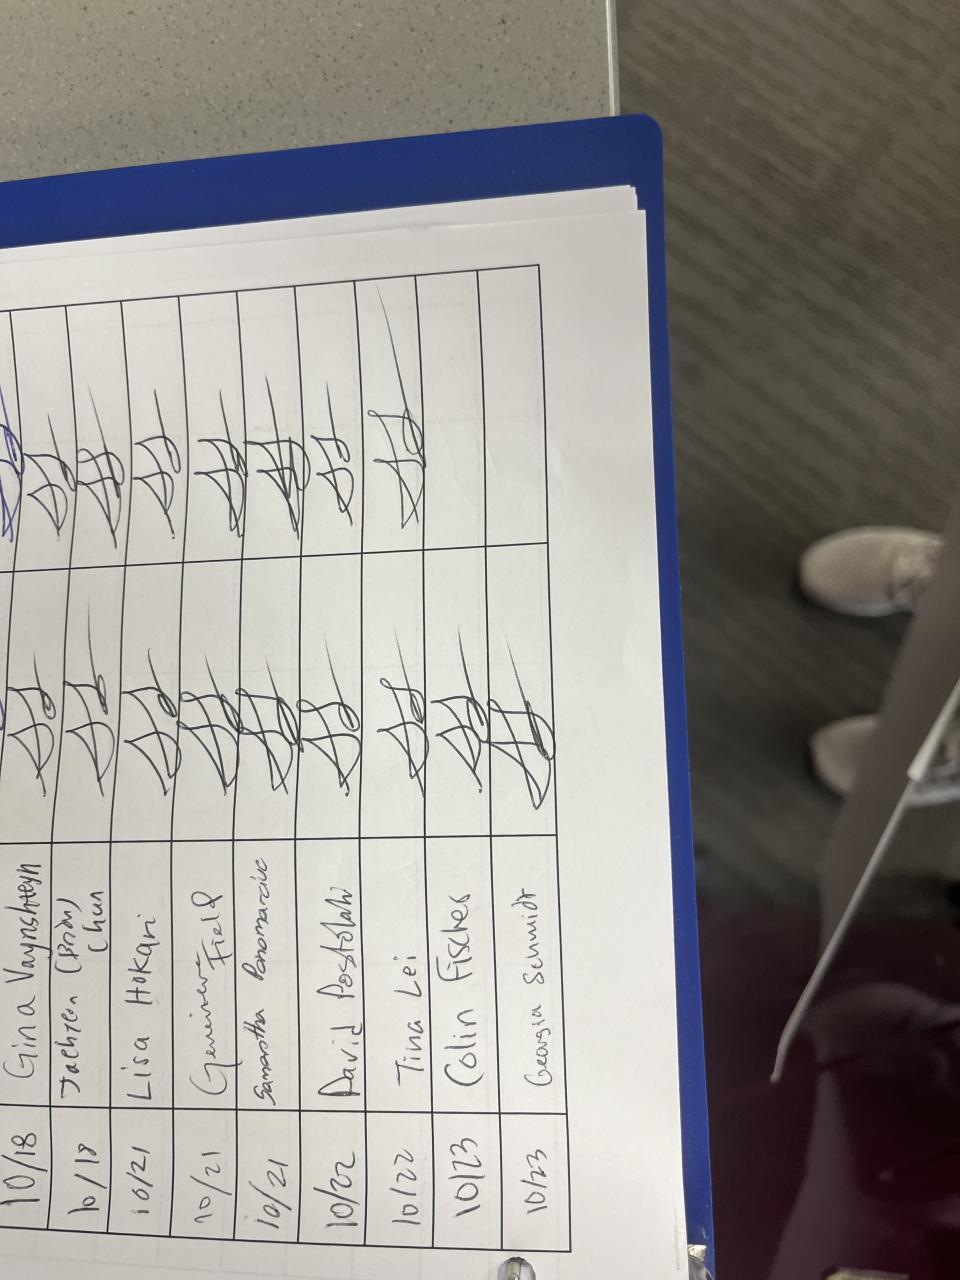 10/18 Gina Vaynshteyn
10/18 Jaehren (Brian)
Chun
10/21 Lisa Hokari
10/21 Genevieve
Field
10/21 Samantha Ponomarciuc
10/22 David Postolaki
10/22 Tina Lei
10/23 Colin Fischer
10/23 Georgia Schmidt